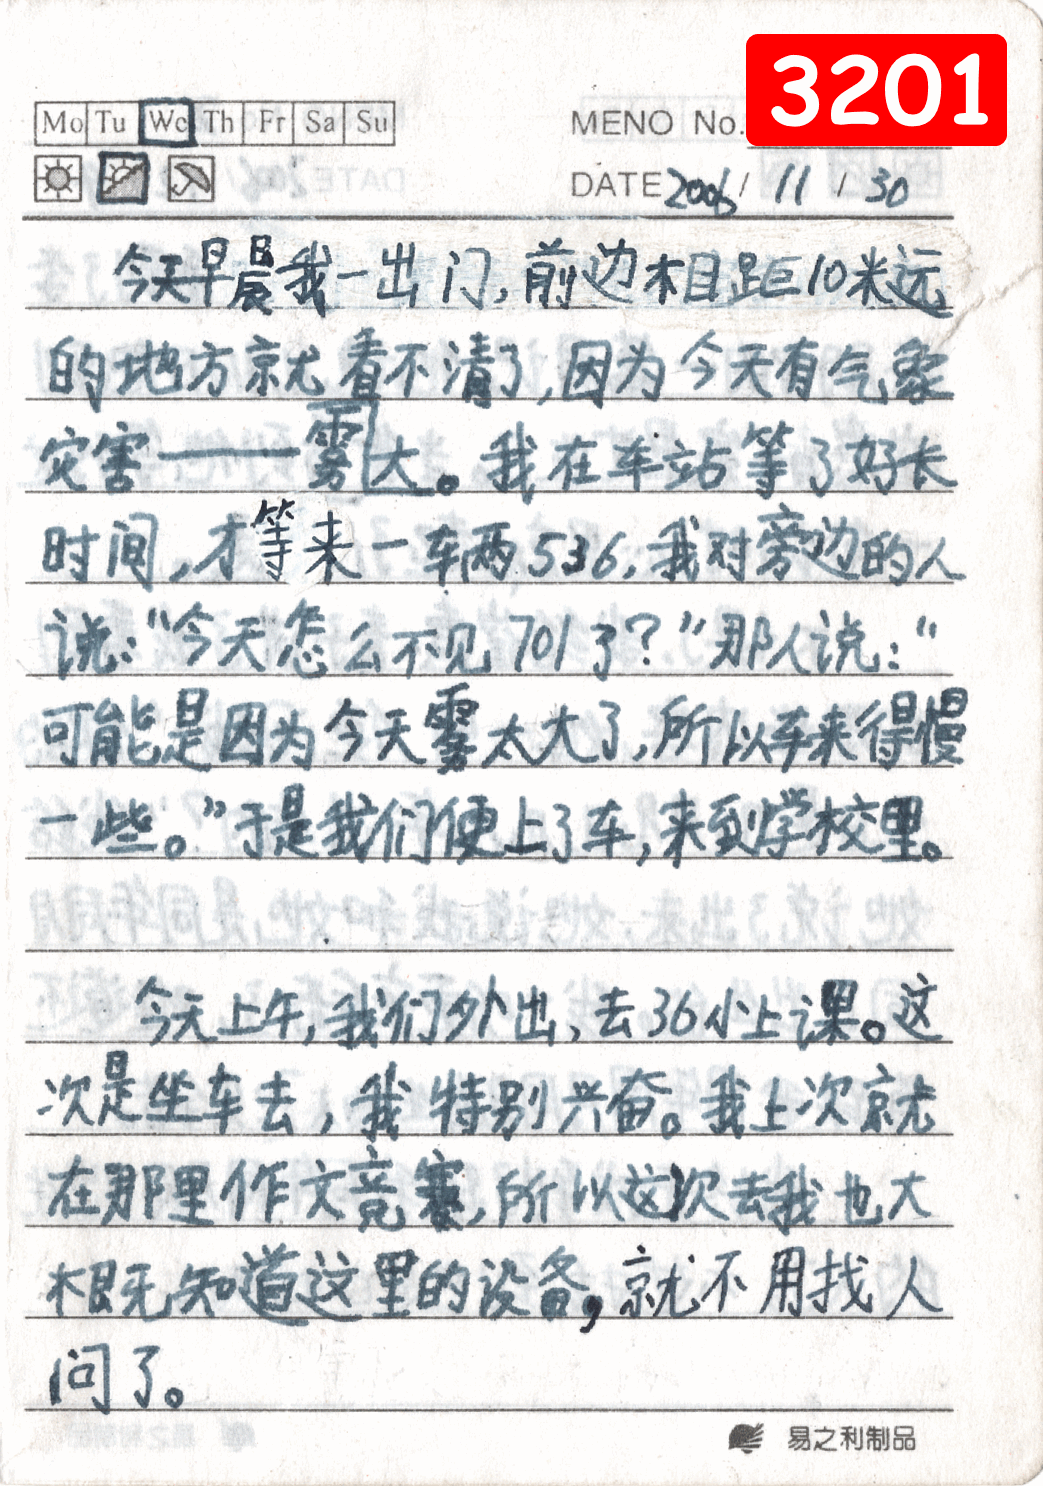 3201
Mo Tu We Th Fr Sa Su
MENO No.
DATE 2006 / 11 / 30
今天早晨我一出门,前边相距10米远
的地方就看不清了,因为今天有气象
灾害——雾大。我在车站等了好长
时间,才等来一车两536,我对旁边的人
说:“今天怎么不见701了?”那人说:“
可能是因为今天雾太大了,所以车来得慢
一些。”于是我们便上了车,来到学校里。
今天上午,我们外出,去36小上课。这
次是坐车去,我特别兴奋。我上次就
在那里作文竞赛,所以这次去我也大
概知道这里的设备,就不用找人
问了。
易之利制品